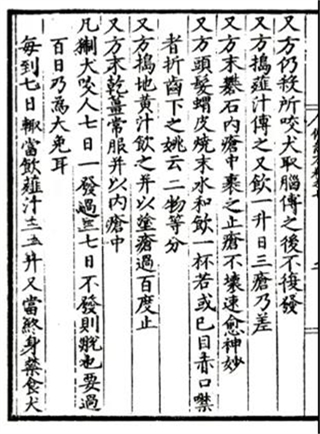 又方仍殺所咬犬取腦傅之後不復發
又方搗薤汁傅之又飲一升日三瘡乃差
又方末礬石內瘡中裹之止瘡不壞速愈神妙
又方頭髮蝟皮燒末水和飲一杯若或已目赤口噤
者折齒下之姚云二物等分
又方搗地黃汁飲之并以塗瘡過百度止
又方末乾薑常服并以內瘡中
凡猘犬咬人七日一發過三七日不發則脫也要過
百日乃為大免耳
每到七日輒當飲薤汁升又當終身禁食犬